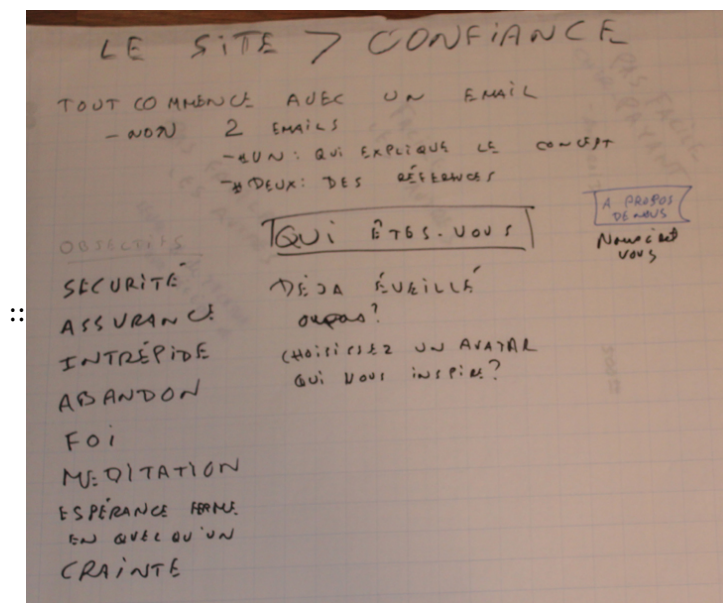 LE SITE > CONFIANCE
TOUT COMMENCE AVEC UN EMAIL
- NON 2 EMAILS
- #UN: QUI EXPLIQUE LE CONCEPT
- #DEUX: DES RÉFÉRENCES
A PROPOS
DE NOUS
Nous c'est
vous
QUI ÊTES-VOUS
OBJECTIFS
SÉCURITÉ
ASSURANCE
INTRÉPIDE
ABANDON
FOI
MEDITATION
ESPÉRANCE FERME
EN QUELQU'UN
CRAINTE
DÉJA ÉVEILLÉ
ou pas?
CHOISISSEZ UN AVATAR
QUI VOUS INSPIRE?